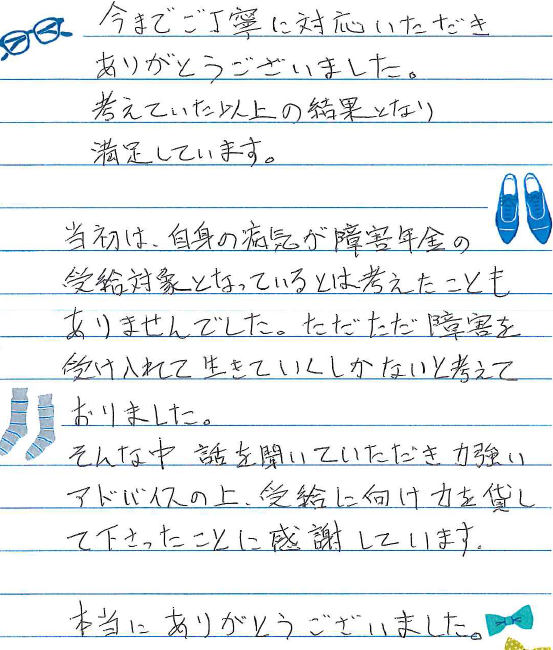 今までご丁寧に対応いただき
ありがとうございました。
考えていた以上の結果となり
満足しています。
当初は、自身の病気が障害年金の
受給対象となっているとは考えたことも
ありませんでした。ただただ障害を
受け入れて生きていくしかないと考えて
おりました。
そんな中 話を聞いていただき力強い
アドバイスの上、受給に向け力を貸し
て下さったことに感謝しています。
本当に ありがとうございました。